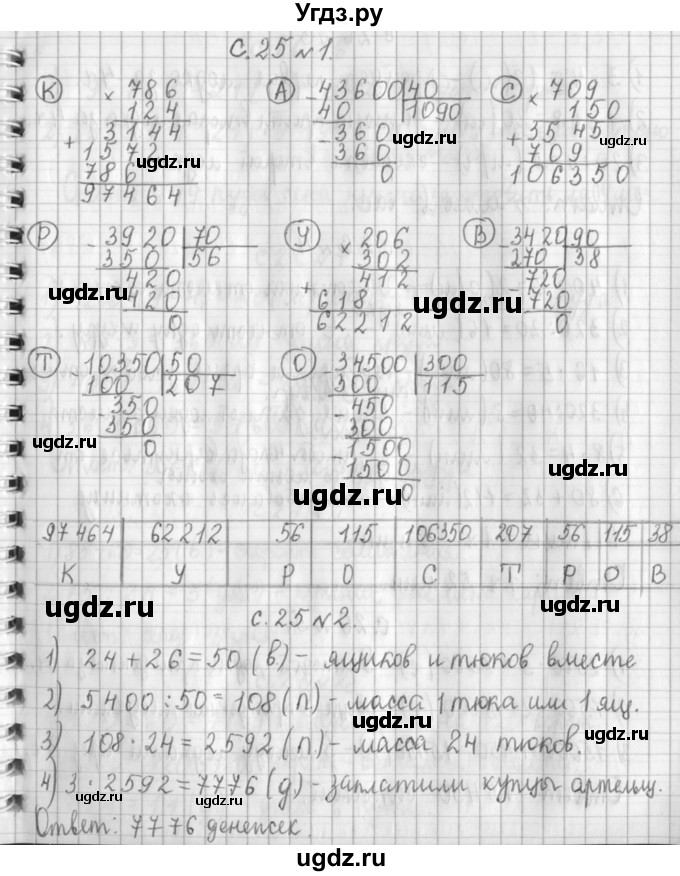 Угдз.ру
с. 25 №1.
К × 786
124
+ 3144
1572
786
97464
А - 43600 | 40
40 | 1090
- 360
360
0
С × 709
150
+ 3545
709
106350
угдз.ru
угдз.ru
Р - 3920 | 70
350 | 56
- 420
420
0
У × 206
302
+ 412
618
62212
В - 3420 | 90
270 | 38
- 720
720
0
ugdz.ru
ugdz.ru
ugdz.ru
Т - 10350 | 50
100 | 207
- 350
350
0
О - 34500 | 300
300 | 115
- 450
300
- 1500
1500
0
ugdz.ru
ugdz.ru
ugdz.ru
97464 | 62212 | 56 | 115 | 106350 | 207 | 56 | 115 | 38
К У Р О С Т Р О В
ugdz.ru
ugdz.ru
с. 25 №2.
1) 24 + 26 = 50 (в) - ящиков и тюков вместе
2) 5400 : 50 = 108 (п) - масса 1 тюка или 1 ящ.
ugdz.ru
ugdz.ru
3) 108 · 24 = 2592 (п) - масса 24 тюков.
4) 3 · 2592 = 7776 (д) - заплатили купцы артельщ.
ugdz.ru
ugdz.ru
Ответ: 7776 денепсек.
ugdz.ru